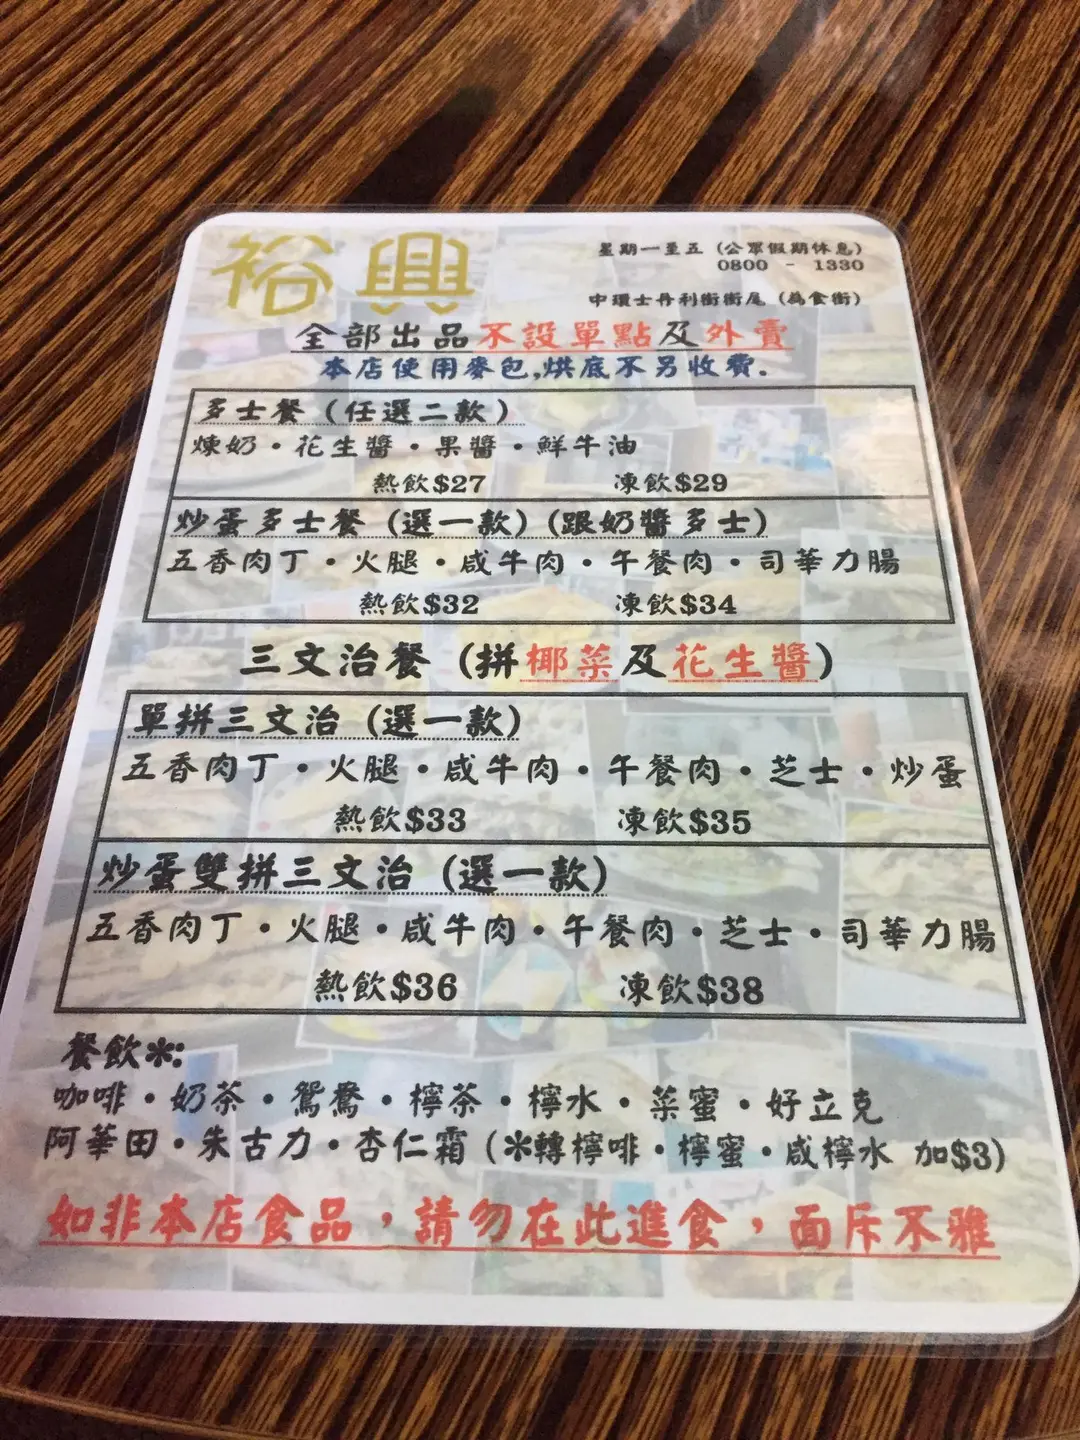 裕興
星期一至五 (公眾假期休息)
0800 - 1330
中環士丹利街街尾 (為食街)
全部出品不設單點及外賣
本店使用麥包,烘底不另收費.
多士餐 (任選二款)
煉奶・花生醬・果醬・鮮牛油
熱飲$27 凍飲$29
炒蛋多士餐 (選一款) (跟奶醬多士)
五香肉丁・火腿・咸牛肉・午餐肉・司華力腸
熱飲$32 凍飲$34
三文治餐 (拼椰菜及花生醬)
單拼三文治 (選一款)
五香肉丁・火腿・咸牛肉・午餐肉・芝士・炒蛋
熱飲$33 凍飲$35
炒蛋雙拼三文治 (選一款)
五香肉丁・火腿・咸牛肉・午餐肉・芝士・司華力腸
熱飲$36 凍飲$38
餐飲*:
咖啡・奶茶・鴛鴦・檸茶・檸水・菜蜜・好立克
阿華田・朱古力・杏仁霜 (*轉檸啡・檸蜜・咸檸水 加$3)
如非本店食品，請勿在此進食，面斥不雅